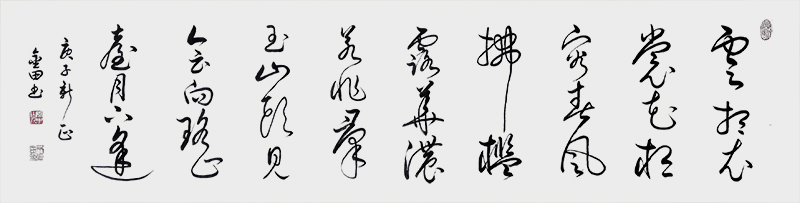 雲想衣
裳花想
容春風
拂檻
露華濃
若非羣
玉山頭見
会向瑤
臺月下逢
庚子新正
田书